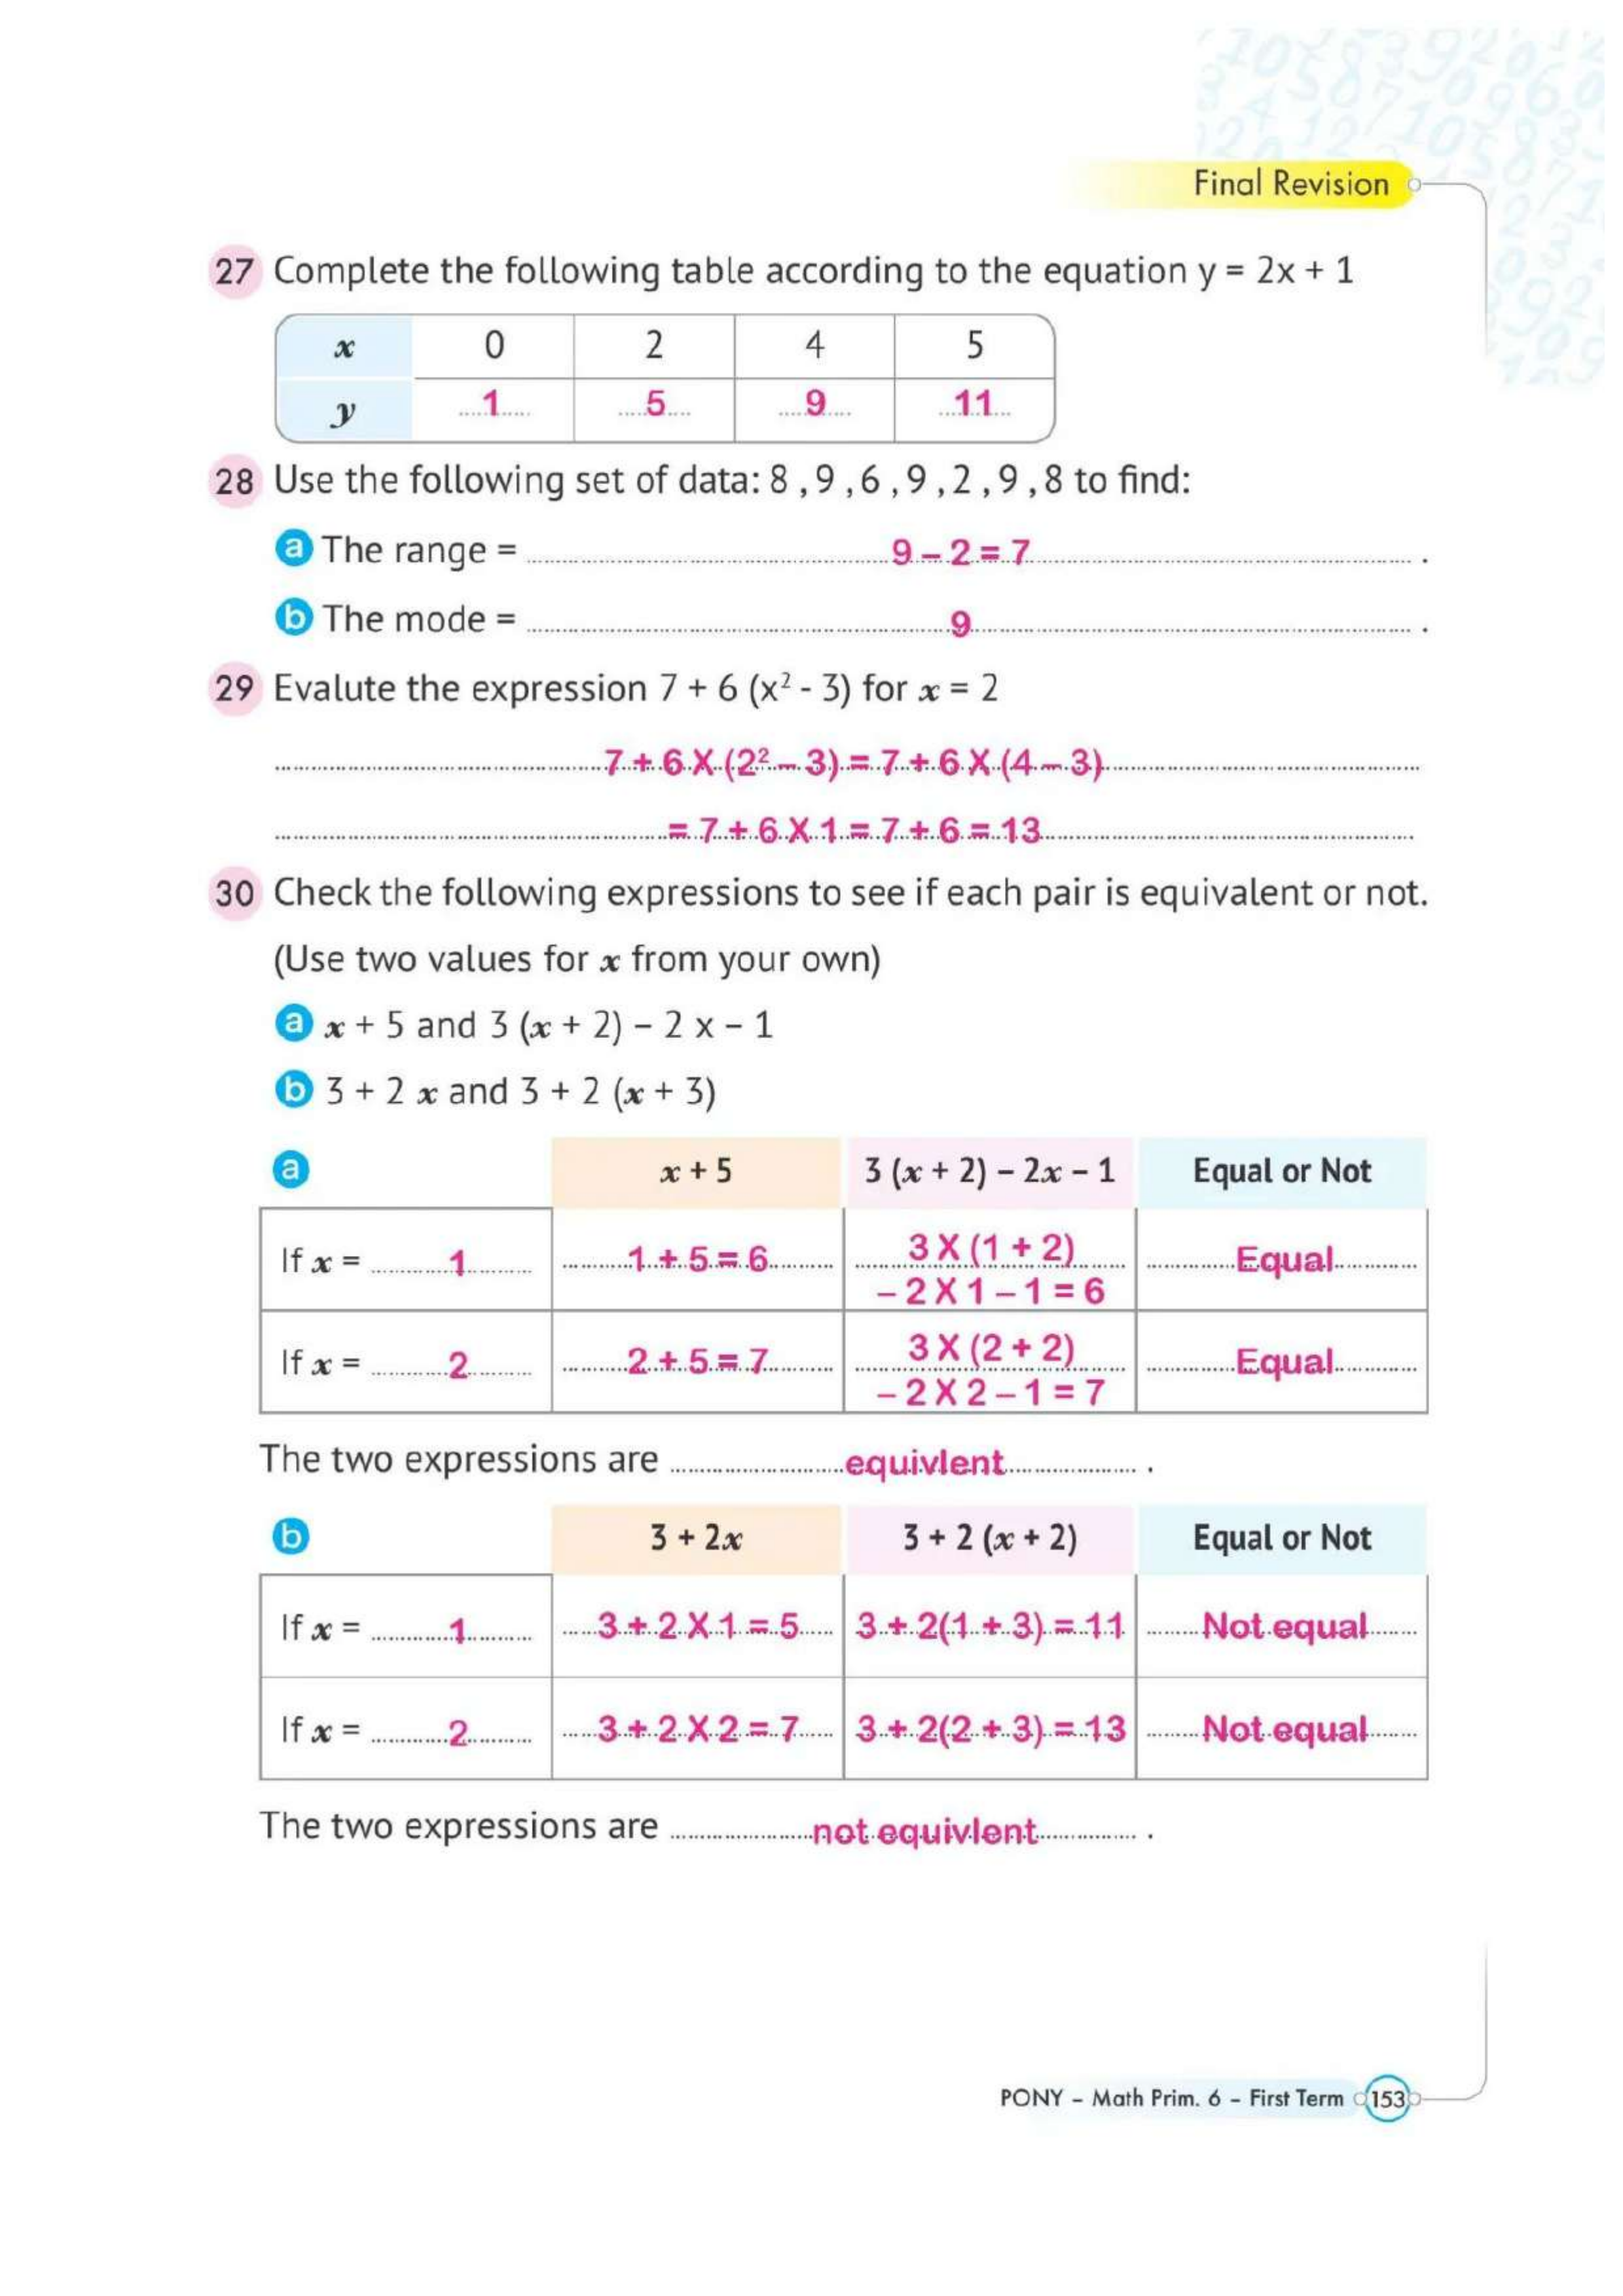 Final Revision
27 Complete the following table according to the equation y = 2x + 1
x 0 2 4 5
y 1 5 9 11
28 Use the following set of data: 8 , 9 , 6 , 9 , 2 , 9 , 8 to find:
a The range = 9 – 2 = 7 .
b The mode = 9 .
29 Evalute the expression 7 + 6 (x² - 3) for x = 2
7 + 6 X (2² – 3) = 7 + 6 X (4 – 3)
= 7 + 6 X 1 = 7 + 6 = 13
30 Check the following expressions to see if each pair is equivalent or not.
(Use two values for x from your own)
a x + 5 and 3 (x + 2) – 2 x – 1
b 3 + 2 x and 3 + 2 (x + 3)
a x + 5 3 (x + 2) – 2x – 1 Equal or Not
If x = 1 1 + 5 = 6 3 X (1 + 2) Equal
– 2 X 1 – 1 = 6
If x = 2 2 + 5 = 7 3 X (2 + 2) Equal
– 2 X 2 – 1 = 7
The two expressions are equivlent .
b 3 + 2x 3 + 2 (x + 2) Equal or Not
If x = 1 3 + 2 X 1 = 5 3 + 2(1 + 3) = 11 Not equal
If x = 2 3 + 2 X 2 = 7 3 + 2(2 + 3) = 13 Not equal
The two expressions are not equivlent .
PONY – Math Prim. 6 – First Term 153